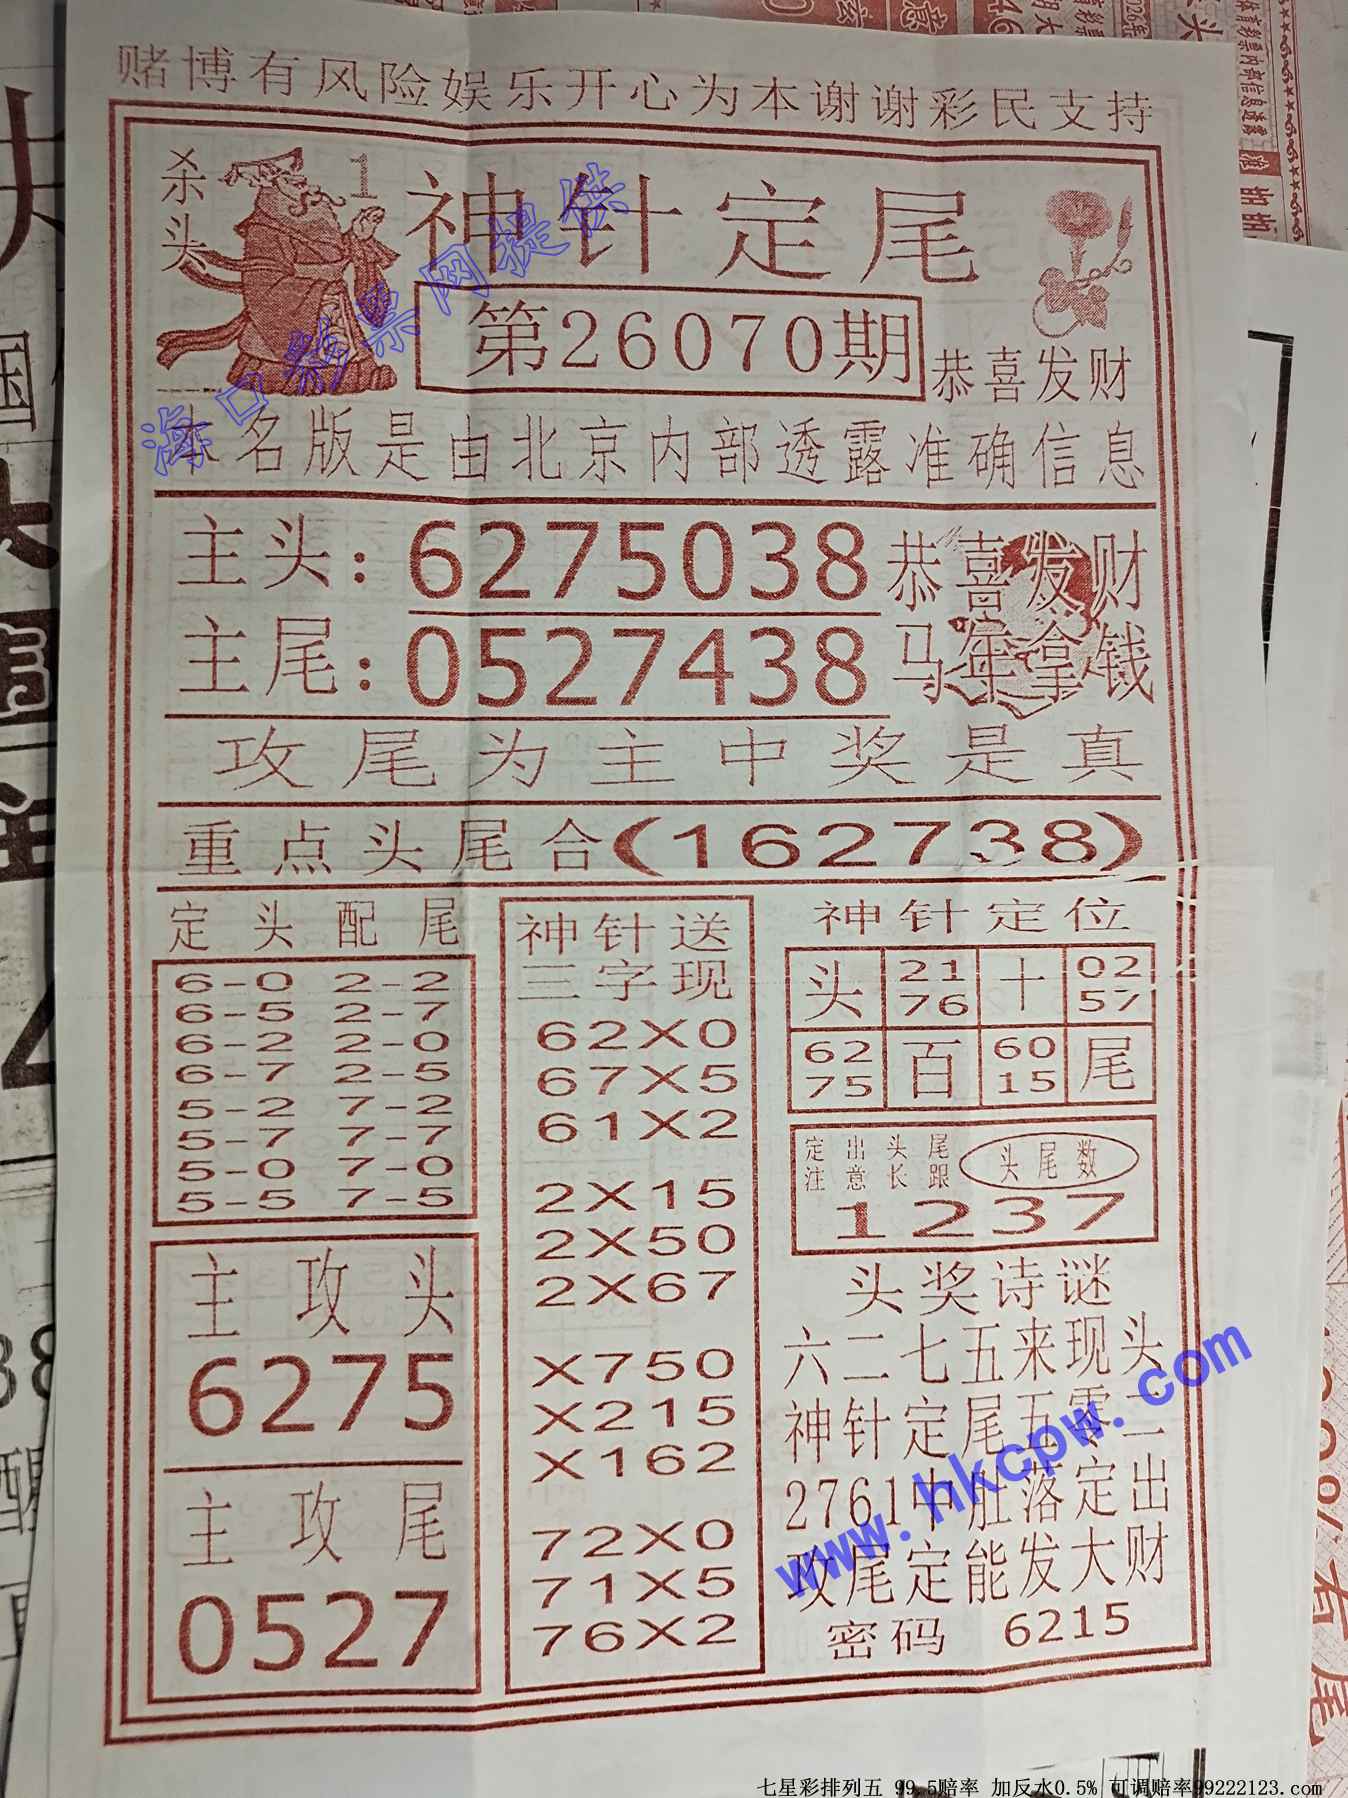 赌博有风险娱乐开心为本谢谢彩民支持
杀头
1
神针定尾
第26070期
恭喜发财
本名版是由北京内部透露准确信息
主头：6275038
恭喜发财
主尾：0527438
马年拿钱
攻尾为主中奖是真
重点头尾合(162738)
定头配尾
6-0 2-2
6-5 2-7
6-2 2-0
6-7 2-5
5-2 7-2
5-7 7-7
5-0 7-0
5-5 7-5
主攻头
6275
主攻尾
0527
神针送
三字现
62X0
67X5
61X2
2X15
2X50
2X67
X750
X215
X162
72X0
71X5
76X2
神针定位
头 2176 十 0257
6275 百 6015 尾
定出头尾
注意长跟
头尾数
1237
头奖诗谜
六二七五来现头
神针定尾五零二
2761中肚落定出
攻尾定能发大财
密码 6215
海口彩票网提供
www.hkcpw.com
七星彩排列五 99.5赔率 加反水0.5% 可调赔率99222123.com